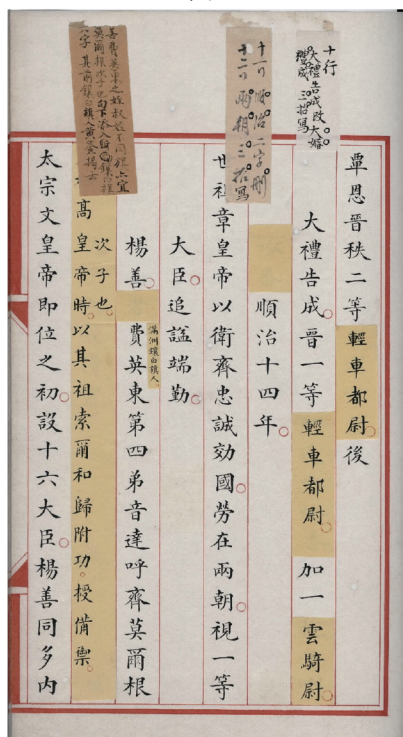 十行
大禮告成改大婚
禮成 三抬寫
十一行順治二字刪
十二行兩朝三抬寫
覃恩晉秩二等輕車都尉後
大禮告成。晉一等輕車都尉。加一雲騎尉。
順治十四年。
世祖章皇帝以衛齊忠誠効國。勞在兩朝。視一等
大臣追謚端勤。
楊善。滿洲鑲白旗人費英東第四弟音達呼齊莫爾根
次子也。
高皇帝時。以其祖索爾和歸附功。授備禦。
太宗文皇帝即位之初。設十六大臣。楊善同多內